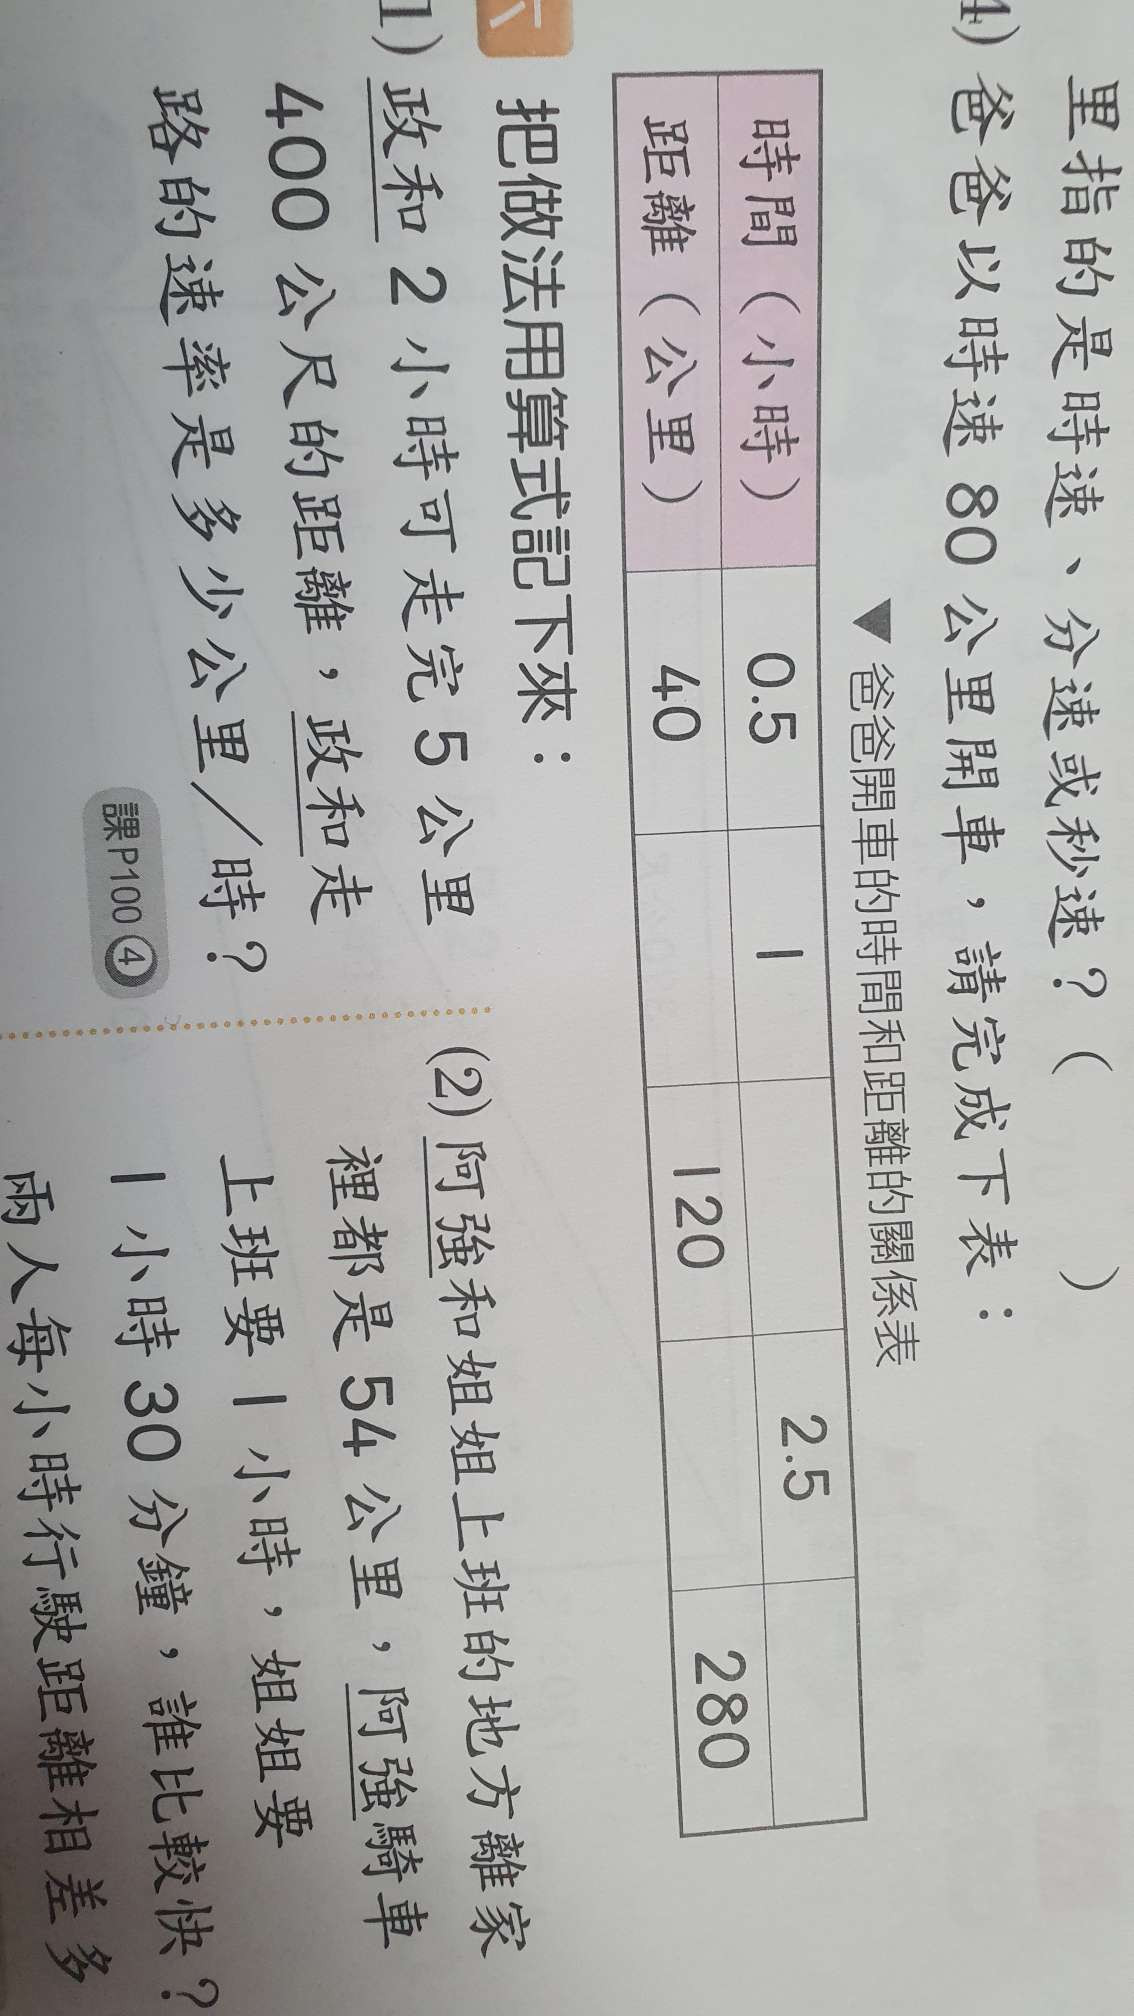 里指的是時速、分速或秒速？（　　　）
4) 爸爸以時速 80 公里開車，請完成下表：
▼ 爸爸開車的時間和距離的關係表
時間（小時） 0.5 1 2.5
距離（公里） 40 120 280
六 把做法用算式記下來：
1) 政和 2 小時可走完 5 公里
400 公尺的距離，政和走
路的速率是多少公里／時？
課P100 ④
(2) 阿強和姐姐上班的地方離家
裡都是 54 公里，阿強騎車
上班要 1 小時，姐姐要
1 小時 30 分鐘，誰比較快？
兩人每小時行駛距離相差多